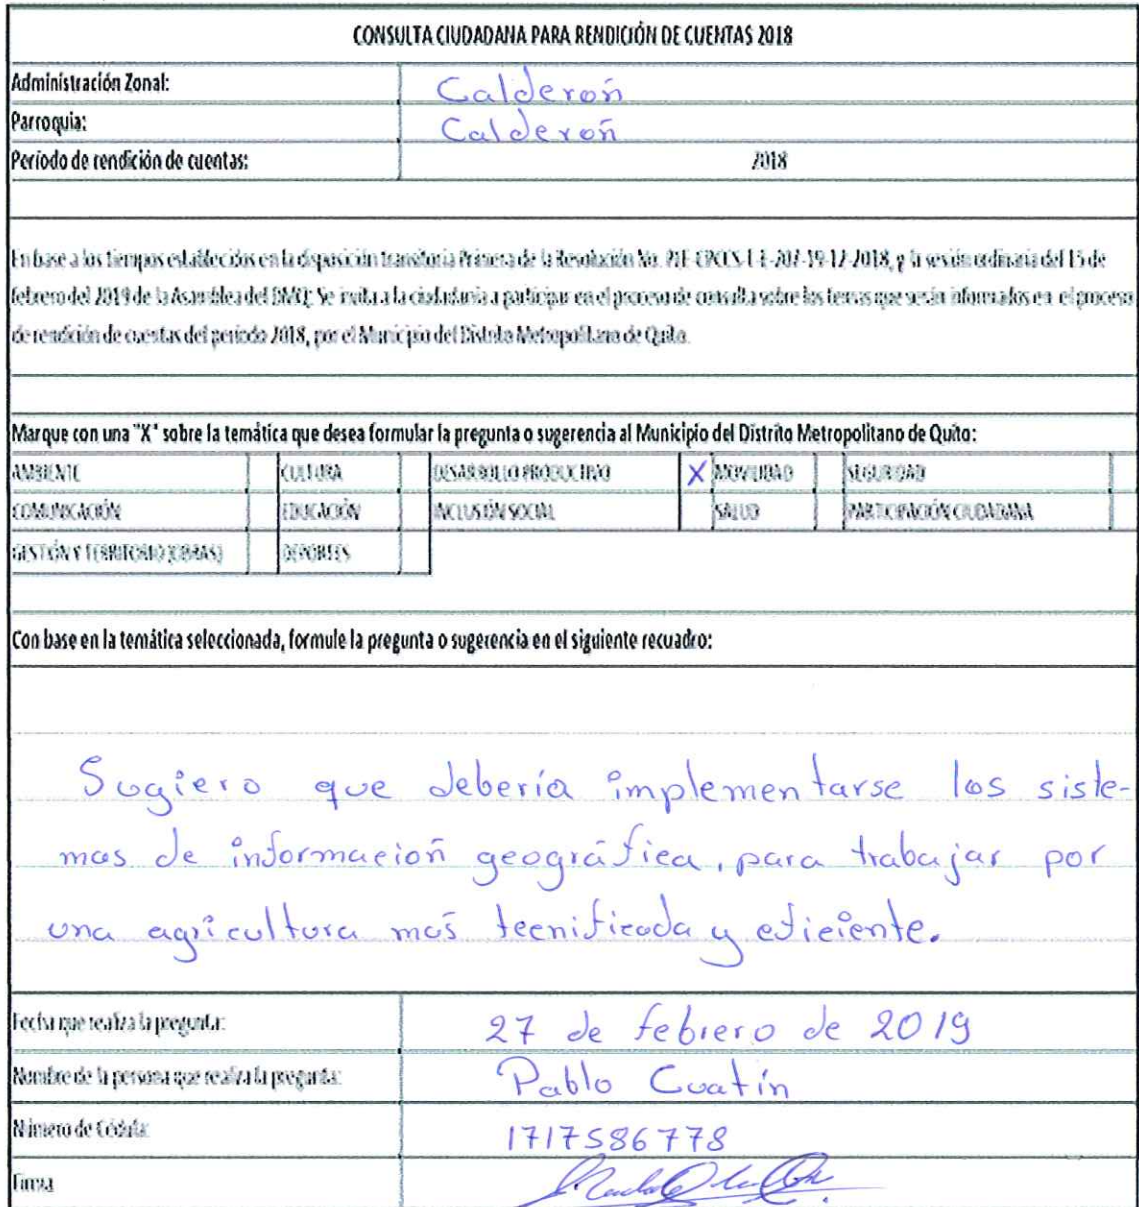 CONSULTA CIUDADANA PARA RENDICIÓN DE CUENTAS 2018
Administración Zonal: Calderón
Parroquia: Calderón
Período de rendición de cuentas: 2018
En base a los tiempos establecidos en la disposición transitoria Primera de la Resolución No. 2018, y la sesión ordinaria del 15 de
febrero del 2019 de la Asamblea del DMQ; Se invita a la ciudadanía a participar en el proceso de consulta sobre los temas que serán informados en el proceso
de rendición de cuentas del período 2018, por el Municipio del Distrito Metropolitano de Quito.
Marque con una "X" sobre la temática que desea formular la pregunta o sugerencia al Municipio del Distrito Metropolitano de Quito:
AMBIENTE CULTURA DESARROLLO PRODUCTIVO X MOVILIDAD SEGURIDAD
COMUNICACIÓN EDUCACIÓN INCLUSIÓN SOCIAL SALUD PARTICIPACIÓN CIUDADANA
GESTIÓN Y TERRITORIO (OBRAS) DEPORTES
Con base en la temática seleccionada, formule la pregunta o sugerencia en el siguiente recuadro:
Sugiero que debería implementarse los siste-
mas de información geográfica, para trabajar por
una agricultura más tecnificada y eficiente.
Fecha que realiza la pregunta: 27 de febrero de 2019
Nombre de la persona que realiza la pregunta: Pablo Cuatín
Número de Cédula: 1717586778
Firma